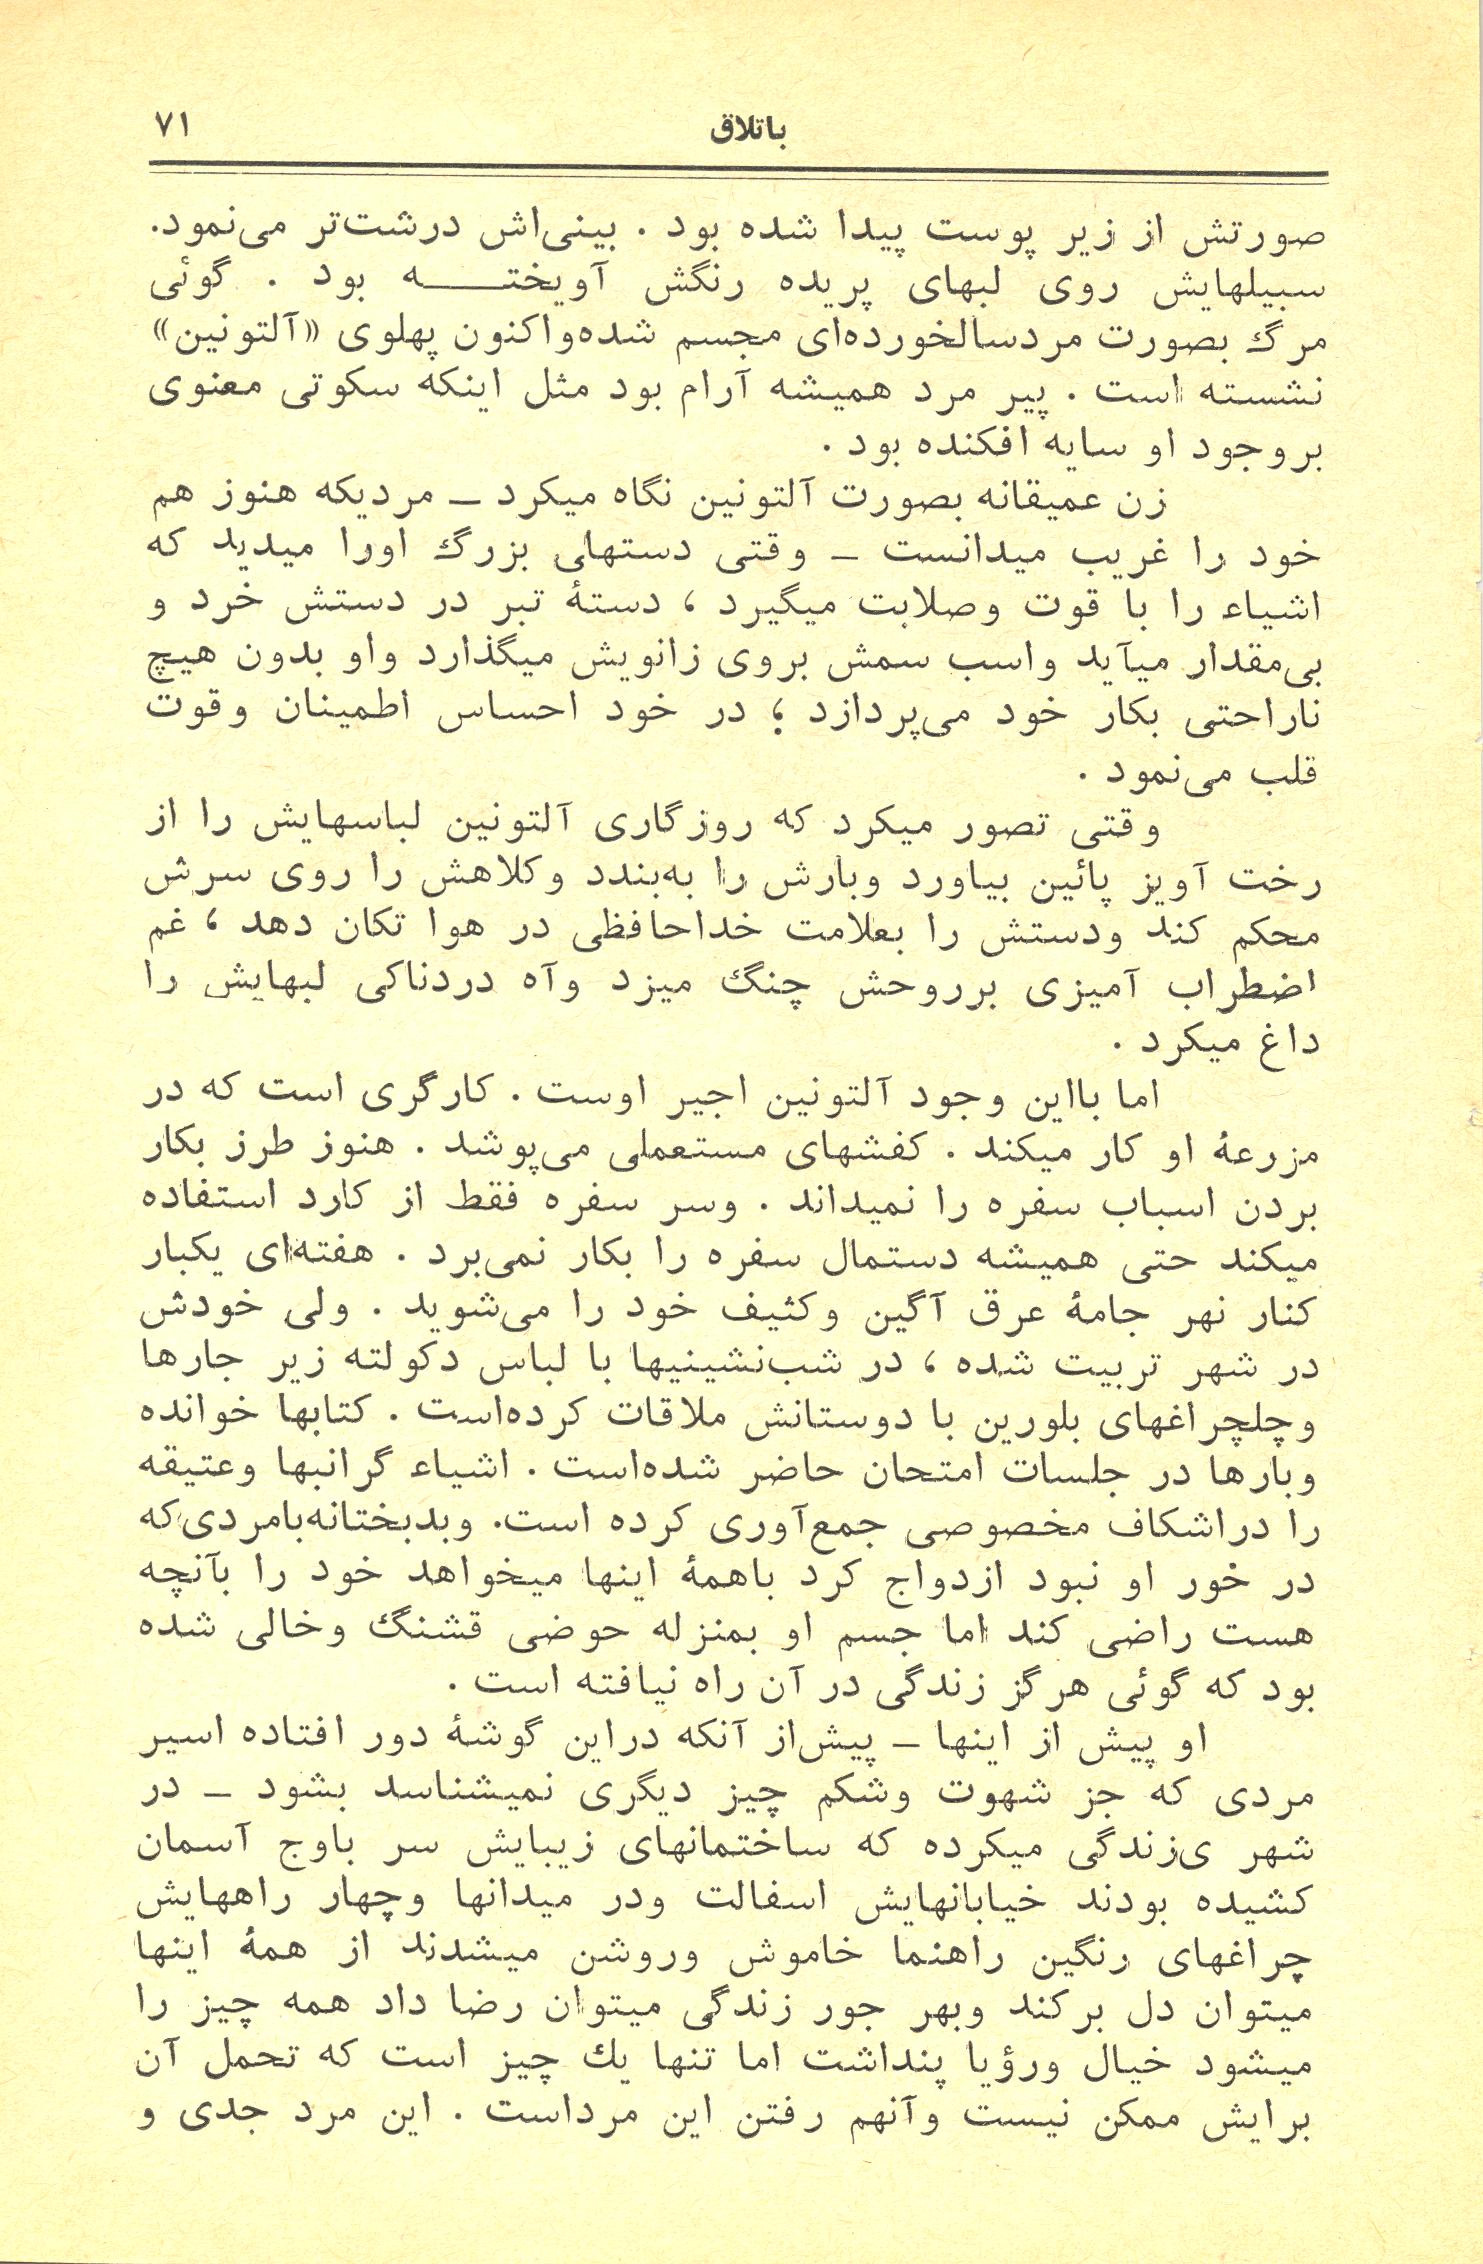 باتلاق ۷۱
صورتش از زیر پوست پیدا شده بود . بینی‌اش درشت‌تر می‌نمود.
سبیلهایش روی لبهای پریده رنگش آویختـــــه بود . گوئی
مرگ بصورت مردسالخورده‌ای مجسم شده‌واکنون پهلوی «آلتونین»
نشسته است . پیر مرد همیشه آرام بود مثل اینکه سکوتی معنوی
بروجود او سایه افکنده بود .
زن عمیقانه بصورت آلتونین نگاه میکرد – مردیکه هنوز هم
خود را غریب میدانست – وقتی دستهای بزرگ اورا میدید که
اشیاء را با قوت وصلابت میگیرد ، دستهٔ تبر در دستش خرد و
بی‌مقدار میآید واسب سمش بروی زانویش میگذارد واو بدون هیچ
ناراحتی بکار خود می‌پردازد ؛ در خود احساس اطمینان وقوت
قلب می‌نمود .
وقتی تصور میکرد که روزگاری آلتونین لباسهایش را از
رخت آویز پائین بیاورد وبارش را به‌بندد وکلاهش را روی سرش
محکم کند ودستش را بعلامت خداحافظی در هوا تکان دهد ، غم
اضطراب آمیزی برروحش چنگ میزد وآه دردناکی لبهایش را
داغ میکرد .
اما بااین وجود آلتونین اجیر اوست . کارگری است که در
مزرعهٔ او کار میکند . کفشهای مستعملی می‌پوشد . هنوز طرز بکار
بردن اسباب سفره را نمیداند . وسر سفره فقط از کارد استفاده
میکند حتی همیشه دستمال سفره را بکار نمی‌برد . هفته‌ای یکبار
کنار نهر جامهٔ عرق آگین وکثیف خود را می‌شوید . ولی خودش
در شهر تربیت شده ، در شب‌نشینیها با لباس دکولته زیر جارها
وچلچراغهای بلورین با دوستانش ملاقات کرده‌است . کتابها خوانده
وبارها در جلسات امتحان حاضر شده‌است . اشیاء گرانبها وعتیقه
را دراشکاف مخصوصی جمع‌آوری کرده است. وبدبختانه‌بامردی‌که
در خور او نبود ازدواج کرد باهمهٔ اینها میخواهد خود را بآنچه
هست راضی کند اما جسم او بمنزله حوضی قشنگ وخالی شده
بود که گوئی هرگز زندگی در آن راه نیافته است .
او پیش از اینها – پیش‌از آنکه دراین گوشهٔ دور افتاده اسیر
مردی که جز شهوت وشکم چیز دیگری نمیشناسد بشود – در
شهر ی‌زندگی میکرده که ساختمانهای زیبایش سر باوج آسمان
کشیده بودند خیابانهایش اسفالت ودر میدانها وچهار راههایش
چراغهای رنگین راهنما خاموش وروشن میشدند از همهٔ اینها
میتوان دل برکند وبهر جور زندگی میتوان رضا داد همه چیز را
میشود خیال ورؤیا پنداشت اما تنها یك چیز است که تحمل آن
برایش ممکن نیست وآنهم رفتن این مرداست . این مرد جدی و